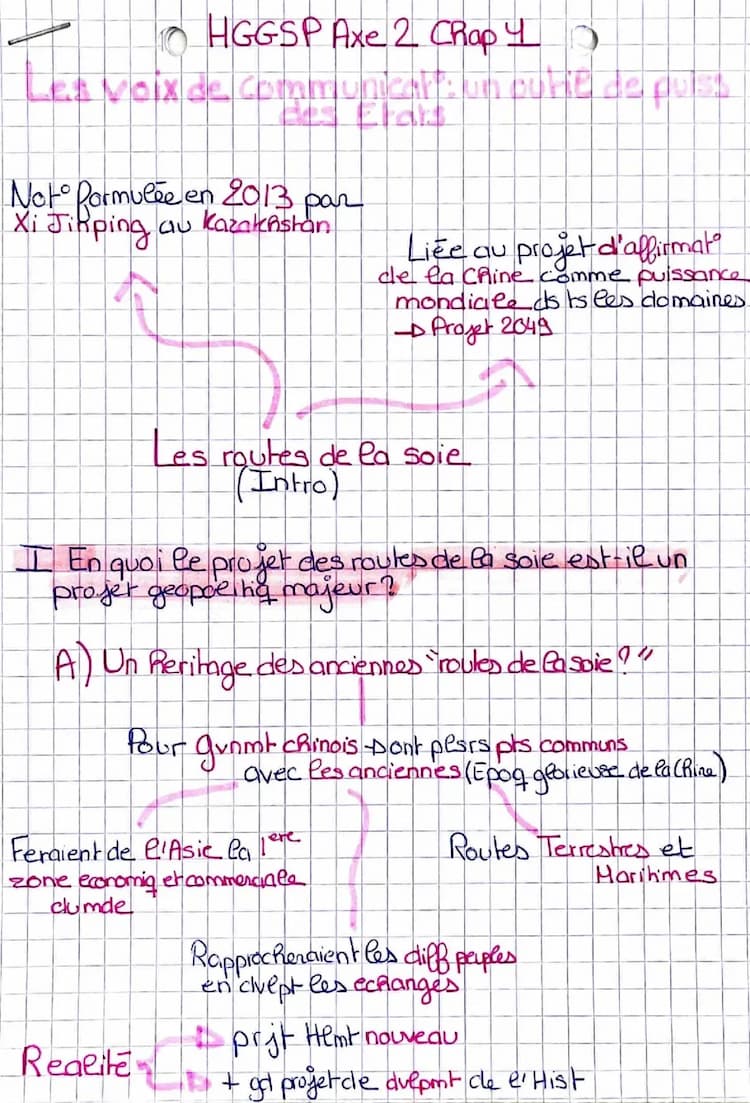 HGGSP Axe 2 Chap 1
Les voix de communicat°: un outil de puiss
des Etats
Not° formulée en 2013 par
Xi Jinping au Kazakhstan
Liée au projet d'affirmat°
de la Chine comme puissance
mondiale ds ts les domaines
→ Projet 2049
Les routes de la soie
(Intro)
I En quoi le projet des routes de la soie est-il un
projet geopolitiq majeur?
A) Un heritage des anciennes "routes de la soie?"
Pour gvnmt chinois → ont plsrs pts communs
avec les anciennes (Epoq glorieuse de la Chine)
Feraient de l'Asie la 1ere
zone economiq et commerciale
du mde
Routes Terrestres et
Maritimes
Rapprocheraient les diff peuples
en dvlpt les echanges
Realité
prjt tlmt nouveau
+ gd projet de dvlpmt de l'Hist